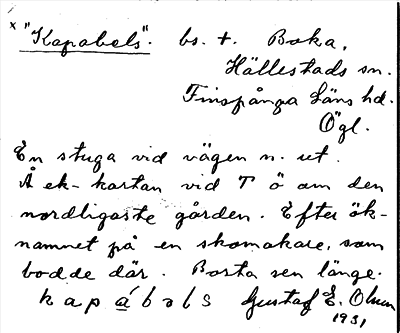 x "Kapabels". bs. t. Boka,
Hällestads sn.
Finspånga Läns hd.
Ögl.
En stuga vid vägen n. ut.
Å ek-kartan vid T ö om den
nordligaste gården. Efter ök-
namnet på en skomakare, som
bodde där. Borta sen länge.
kapábəls Gustaf E. Olsson
1931